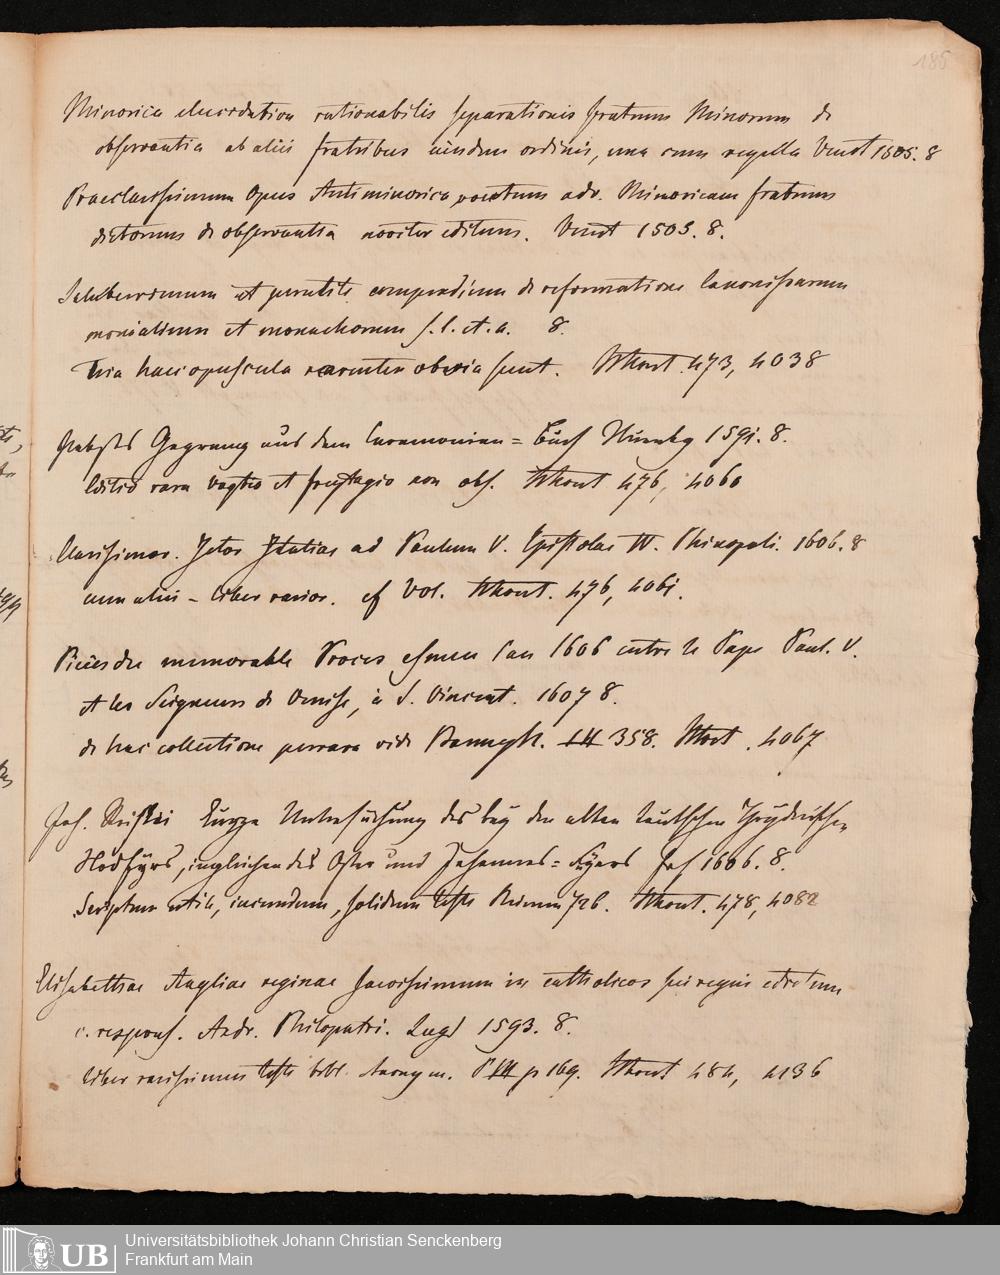 185
Minorica elucidativa rationabilis separationis fratrum Minorum de
observantia ab aliis fratribus eiusdem ordinis, una cum regula Venet 1505. 8
Praeclarissimum Opus Antiminorica vocatum adv. Minoricam fratrum
dictorum de observantia noviter editum. Venet 1505. 8.
Saluberrimum et perutile compendium de reformatione Canonissarum
monialium et monachorum s. l. et. a. 8.
Tria haec opuscula rarenter obvia sunt. 473, 4038
Pabsts Gepräng aus dem Ceremonien = Buch Nürnbg 1591. 8.
Editio rara Vogtio et Freytagio non obs. 476, 4060
Clarissimor. Ictor Italiae ad Paulum V. Epistolae IV. Rhinopoli. 1606. 8
cum aliis - Liber rarior. cf Vol. 476, 4061.
Pieces du memorable Proces esmeu l'an 1606 entre le Pape Paul. V.
et les Seigneurs de Venise, à S. Vincent. 1607 8.
de hac collectione perrara vide Baumgt. 358. 4067
Joh. Kurze Untersuchung des bey den alten teutschen
Nodfyrs, ingleichen des Oster und Johannes = Fyers 8.
Scriptum utile, iucundum, solidum teste 478, 4082
Elisabethae Angliae reginae saevissimum in catholicos sui regni edictum
c. respons. Andr. Philopatri. Lugd 1593. 8.
Liber rarissimus teste bibl. Anonym. p 169. 484, 4136
UB
Universitätsbibliothek Johann Christian Senckenberg
Frankfurt am Main